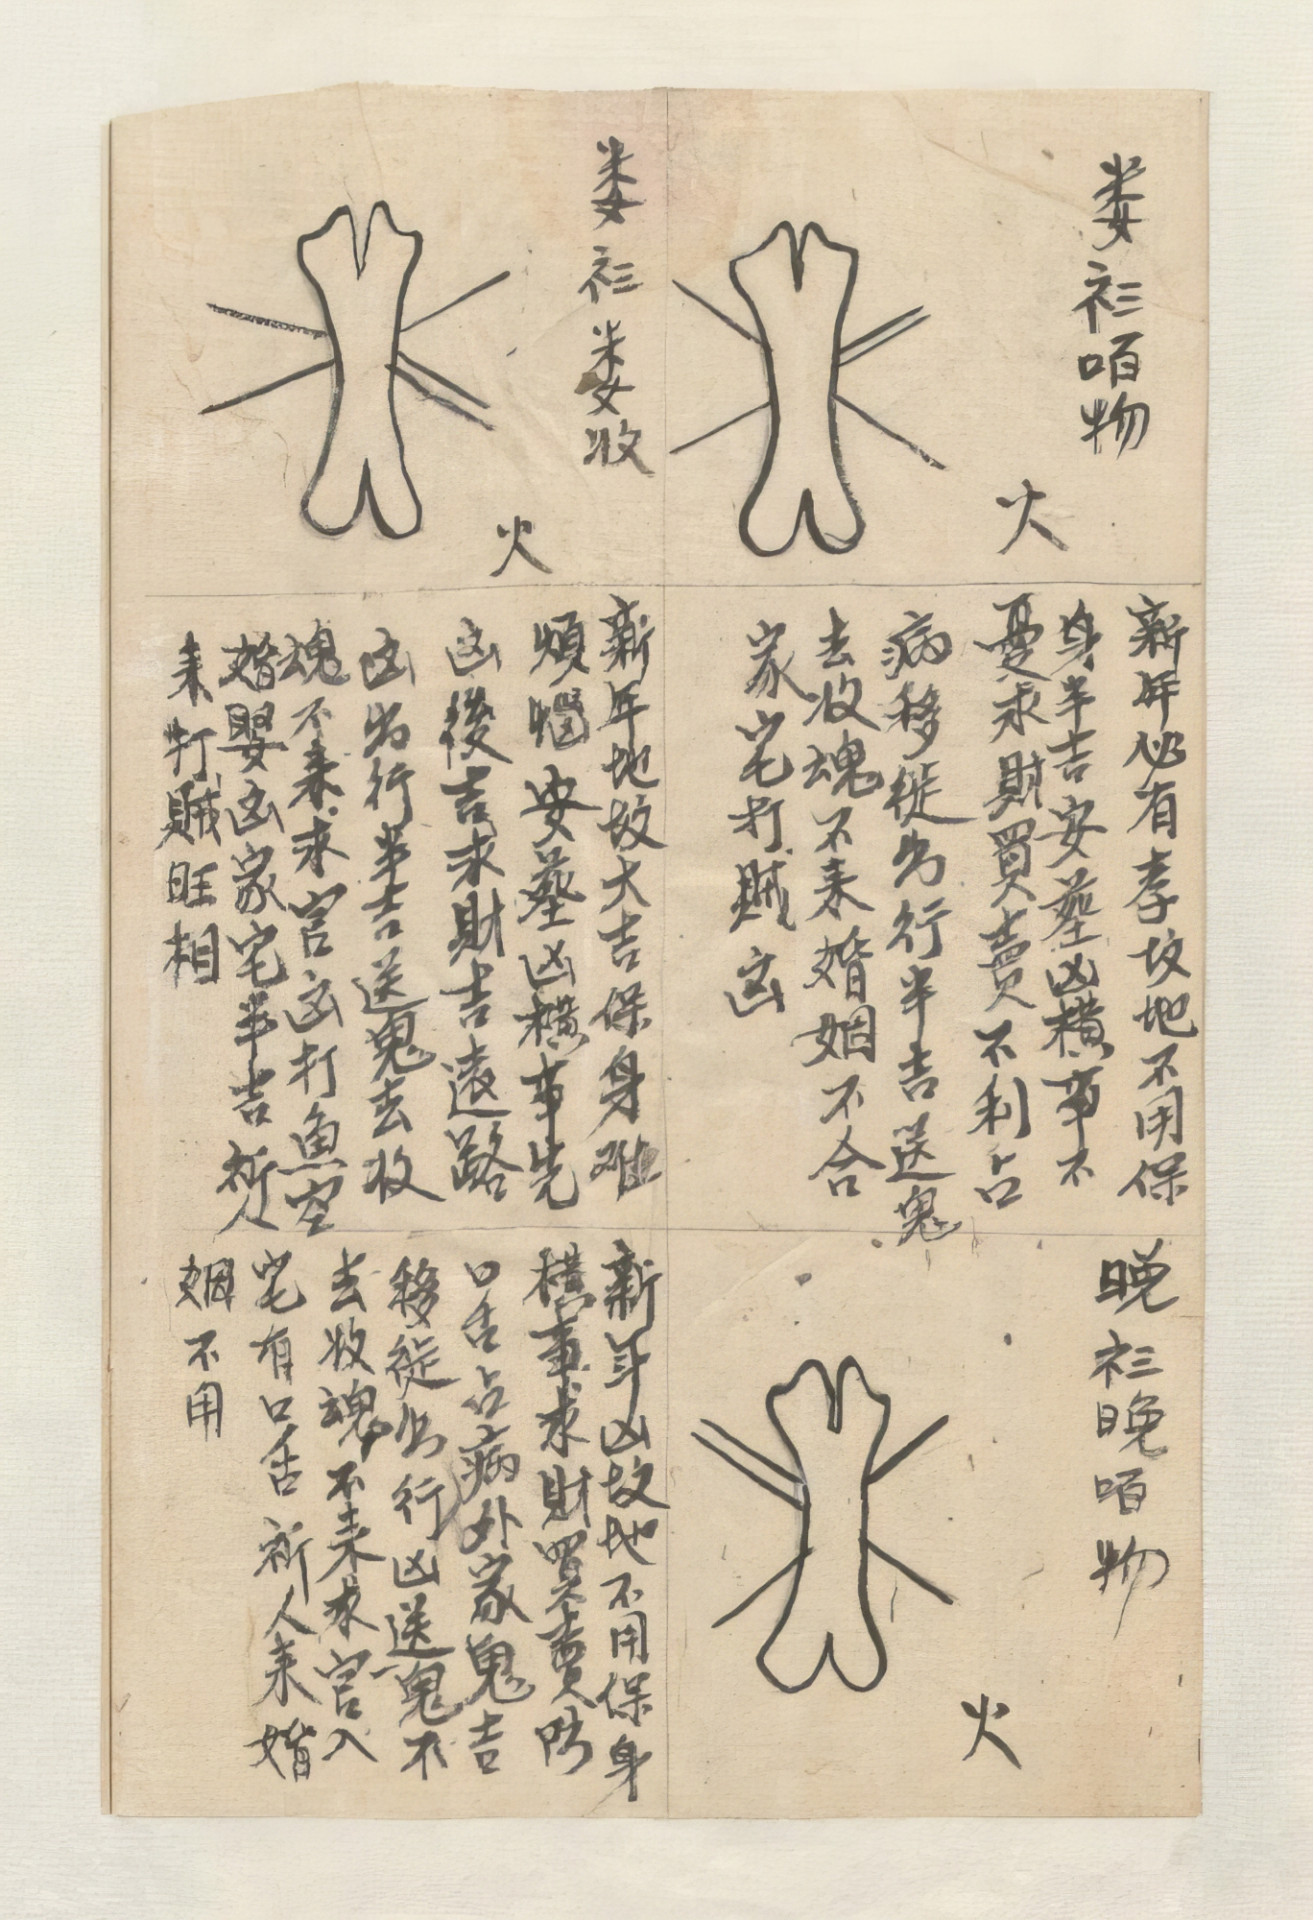 娄衫咟物
火
新年必有孝坟地不用保
身半吉安葬凶横事不
憂求財買賣不利占
病移徙出行半吉送鬼
去收魂不来婚姻不合
家宅打賊凶
娄衫娄收
火
新年地坟大吉保身难
煩惱安葬凶横事先
凶後吉求財吉遠路
凶出行半吉送鬼去收
魂不来求官凶打魚空
婚娶凶家宅半吉祈人
来打賊旺相
晚衫晚咟物
火
新年凶坟地不用保身
横事求財買賣防
口舌占病外家鬼吉
移徙出行凶送鬼不
去收魂不来求官入
宅有口舌祈人来婚
姻不用